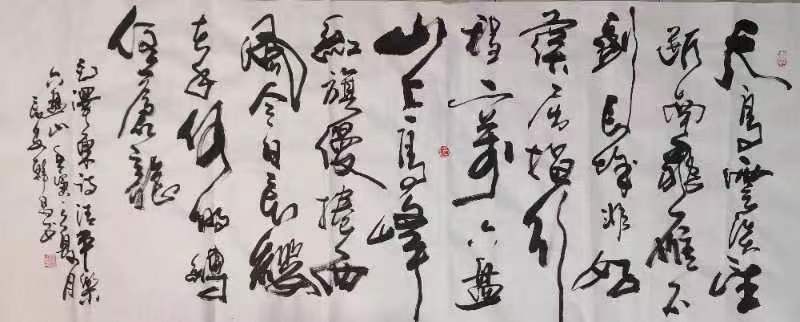 天高雲淡望
断南飛雁不
到長城非好
漢屈指行
程二萬六盤
山上高峰
紅旗漫捲西
風今日長纓
在手何時縛
住蒼龍
毛澤東詩清平樂
六盤山夏月
長安韩